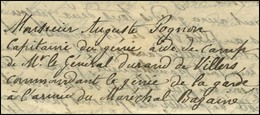 Monsieur Auguste Pognon
Capitaine du génie aide de camp
de Mr le Général durand de Villers
commandant le génie de la garde
à l'armée du Maréchal Bazaine